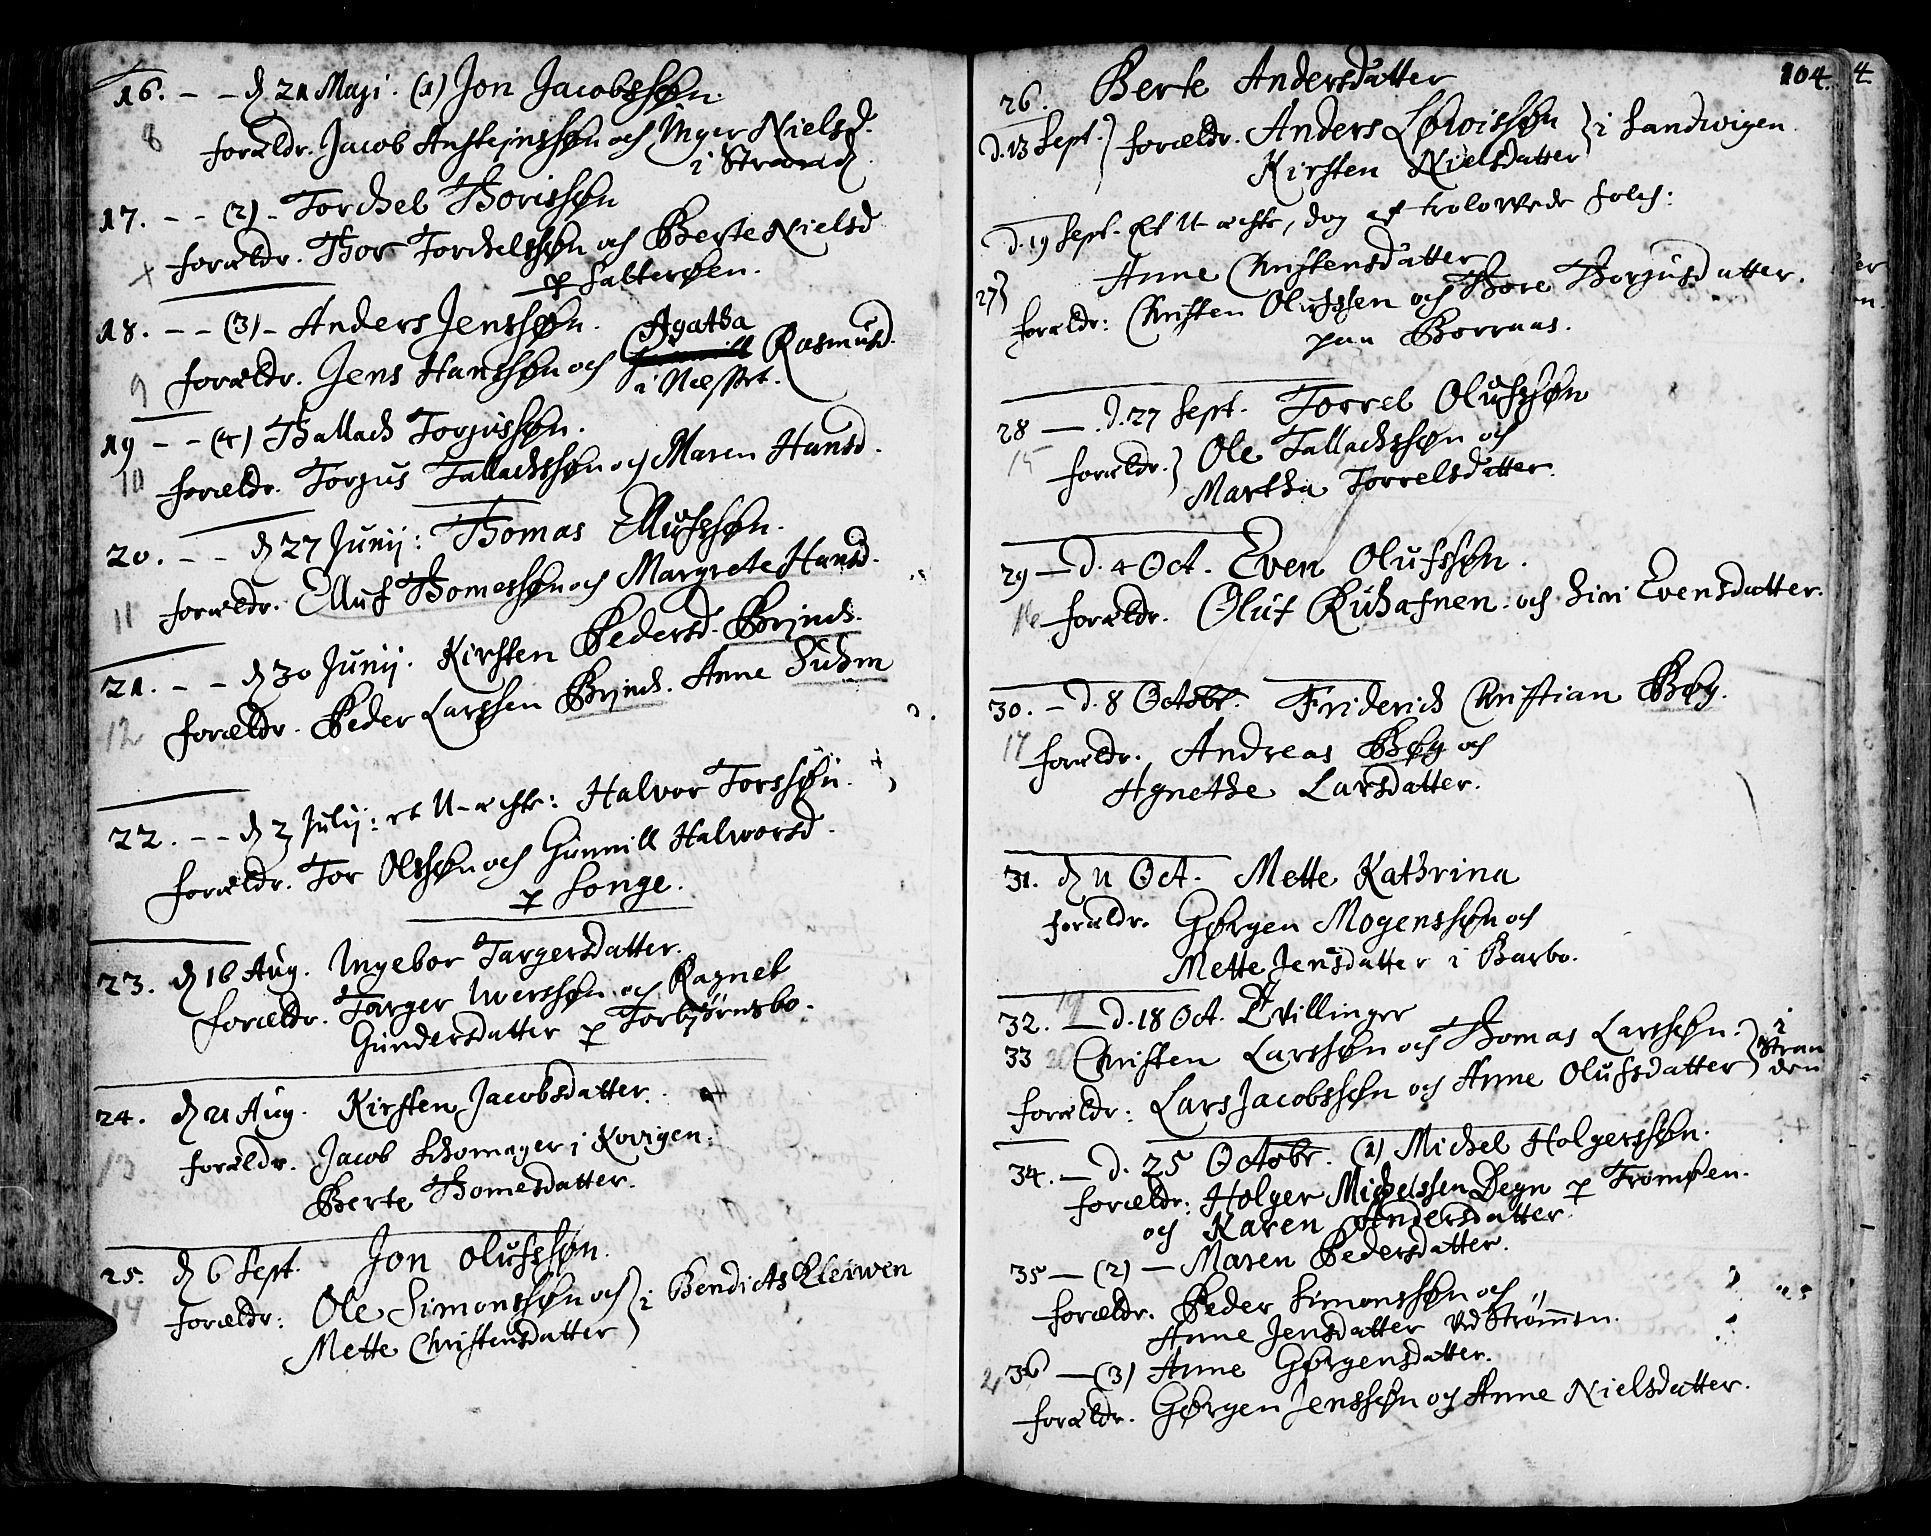 16. - - d 21 Maji. (1) Jon Jacobssøn.
8
forældr. Jacob Ansteinssøn och Inger Nielsd.
i Strand.
17. - - (2) - Torchel Thorissøn
forældr. Thor Torchelssøn och Berte Nielsd
p Salterøen.
18. - - (3) - Anders Jenssøn.
Agatha
forældr. Jens Hanssøn och Rasmusd.
i Næsset.
9
19 - - (4) Thallach Torjussøn.
10
forældr. Torjus Tallachssøn och Maren Hansd.
20. - - d 27 Junij: Thomas Ellufssøn.
11
forældr. Elluf Thomessøn och Margrete Hansd.
21. - - d 30 Junij. Kirsten Pedersd. Brinch.
12
forældr. Peder Larssen Brinch. Anne Suhm
22. - - d 2 Julij: et U-ächte: Halvor Torssøn.
forældr. Tor Olssøn och Gunnill Halworsd.
p Songe.
23. d 16 Aug. Ingebor Targersdatter.
forældr. Targer Iverssøn och Ragnel
Gundersdatter p Torbjørnsbo.
24. d 21 Aug. Kirsten Jacobsdatter.
13
forældr. Jacob Schomager i Kovigen.
Berte Thomesdatter.
25. d 6 Sept. Jon Olufssøn.
14
forældr: Ole Simonssøn och } i Bendicts Kleiwen
Mette Christensdatter
104.
26. Berte Andersdatter
d. 13 Sept. } forældr. Anders Lowissøn } i Sandwigen.
Kirsten Nielsdatter
d. 19 Sept. Et U-ächte, dog af trolowede folch:
27} Anne Christensdatter
forældr: Christen Olufssen och Thore Thorjusdatter.
paa Borraas.
28 — d. 27 Sept. Torrel Olufssøn
15
forældr. } Ole Tallachssøn och
Martha Torrelsdatter.
29 — d. 4 Oct. Even Olufssøn.
16
forældr. Oluf Ruhafnen. och Siri Evensdatter.
30. - d. 8 Octobr. Friderich Christian Bøg.
17
forældr. Andreas Bøg och
Agnethe Larsdatter.
31. d 11 Oct. Mette Kathrina
forældr. Gørgen Mogenssøn och
Mette Jensdatter i Barbo.
19
32. — d. 18 Oct. Tvillinger
33 20 Christen Larssøn och Thomas Larssøn. } i
forældr: Lars Jacobssøn och Anne Olufsdatter } Stran
den
34. — d. 25 Octobr. (1) Michel Holgerssøn.
forældr: Holger Michelssen Degn p Tromøen.
och Karen Andersdatter.
35 — (2) — Maren Pedersdatter.
forældr. Peder Simonssøn och
Anne Jensdatter ved Strømmen.
36 — (3) Anne Gørgensdatter.
forældr. Gørgen Jenssøn och Anne Nielsdatter.